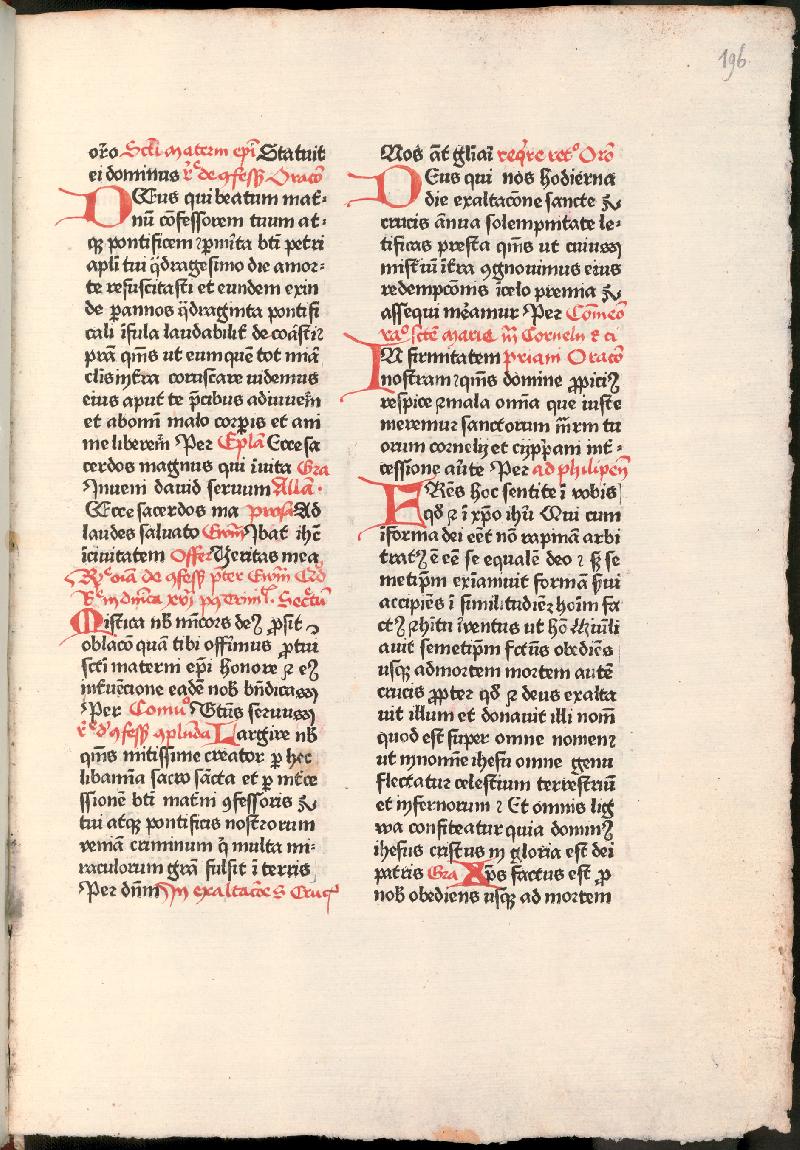 196
oro Scti materni epi Statuit
ei dominus de 9fess Oraco
DEus qui beatum mat-
nū cōfessorem tuum at-
q pontificem p mīta bti petri
apli tui q̄dragesimo die a mor-
te resuscitasti et eundem exin
de p annos q̄draginta pontifi
cali īfula laudabilit decoasti
prā qms ut eum quē tot mia
clis intra coruscare uidemus
eius aput te p̄cibus adiuuem
et abomi malo corpis et ani
me liberem Per Eplā Ecce sa
cerdos magnus qui ī uita Gra
Inueni dauid seruum Alla
Ecce sacerdos ma prosa Ad
laudes saluato Ewm Ibat ihc
ī ciuitatem Offer Veritas mea
de 9fess pter Ewm Crd
Secrtū
Mistica nb mīcors de prosit
oblacō quā tibi offīmus p tui
scti materni epi honore et
intuencione eadē nob bn̄dicass
Per Comu Btūs seruuss
d 9fess 9plnda Largire nb
qms mitissime creator p hec
libamīa sacro sācta et p int̄ce
ssionē bti mat̄ni 9fessoris
tui atq pontificis nostrorum
veniā criminum q̄ multa mi-
raculorum grā fulsit ī terris
Per dnm In exaltacōe s Cruc
Nos āt gliari reqre ret° Oro
DEus qui nos hodierna
die exaltacōne sancte
crucis ānua solempnitate le-
tificas presta qms ut cuiuss
mist̄iū ītra 9gnouimus eius
redempcōnis ī celo premia
assequi m̄eamur Per Cōmeo
sctē marie Cornelii ci
IN firmitatem priani Oraco
nostram qms domine ppici
respice mala omīa que iuste
meremur sanctorum m̄rm tu
orum cornelij et cyppani int-
cessione au̅te Per ad philipen
FRēs hoc sentite ī vobis
qd ī xpo ihu Qui cum
ī forma dei eēt nō rapinā arbi
trat eē se equalē deo sed se
metipm exinaniuit formā s̄ui
accipiēs ī similitudiē hoim fa
ct hitu īventus ut ho Humili
auit semetipm fctūs obediēs
usq ad mortem mortem autē
crucis ppter qd deus exalta
uit illum et donauit illi nom̄
quod est super omne nomen
ut ī nomīe ihesu omne genu
flectatur celestium terrestriū
et infernorum Et omnis lig
wa confiteatur quia domin
ihesus cristus in gloria est dei
patris Gra Xps factus est p
nob obediens usq ad mortem